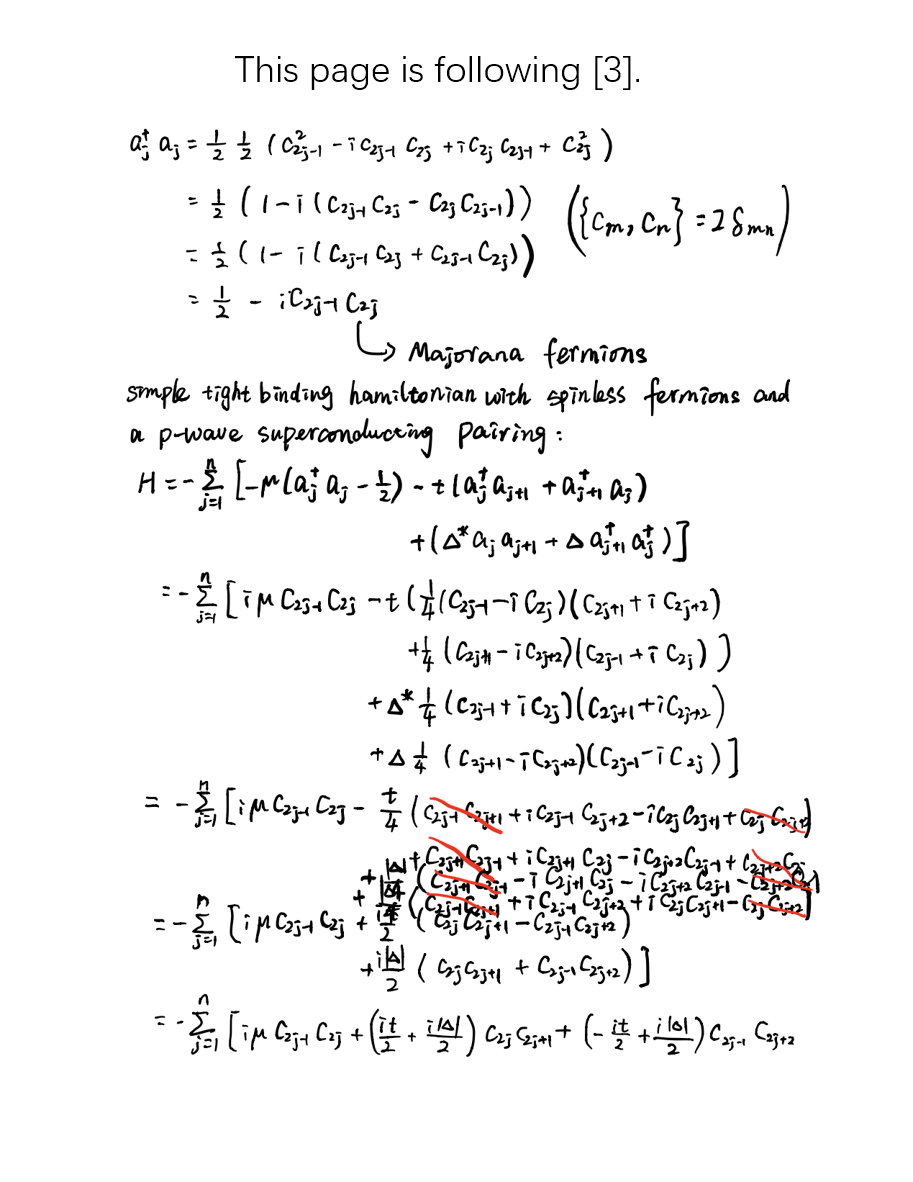 This page is following [3].
a_j^† a_j = 1/2 1/2 (C_{2j-1}^2 - i C_{2j-1} C_{2j} + i C_{2j} C_{2j-1} + C_{2j}^2)
= 1/2 (1 - i (C_{2j-1} C_{2j} - C_{2j} C_{2j-1})) ({C_m, C_n} = 2 δ_{mn})
= 1/2 (1 - i (C_{2j-1} C_{2j} + C_{2j-1} C_{2j}))
= 1/2 - i C_{2j-1} C_{2j}
↳ Majorana fermions
simple tight binding hamiltonian with spinless fermions and
a p-wave superconducting pairing:
H = - Σ_{j=1}^n [-μ(a_j^† a_j - 1/2) - t (a_j^† a_{j+1} + a_{j+1}^† a_j)
+ (Δ* a_j a_{j+1} + Δ a_{j+1}^† a_j^†)]
= - Σ_{j=1}^n [i μ C_{2j-1} C_{2j} - t (1/4 (C_{2j-1} - i C_{2j})(C_{2j+1} + i C_{2j+2})
+ 1/4 (C_{2j+1} - i C_{2j+2})(C_{2j-1} + i C_{2j}))
+ Δ* 1/4 (C_{2j-1} + i C_{2j})(C_{2j+1} + i C_{2j+2})
+ Δ 1/4 (C_{2j+1} - i C_{2j+2})(C_{2j-1} - i C_{2j})]
= - Σ_{j=1}^n [i μ C_{2j-1} C_{2j} - t/4 (C_{2j-1} C_{2j+1} + i C_{2j-1} C_{2j+2} - i C_{2j} C_{2j+1} + C_{2j} C_{2j+2}
+ C_{2j+1} C_{2j-1} + i C_{2j+1} C_{2j} - i C_{2j+2} C_{2j-1} + C_{2j+2} C_{2j})
+ |Δ|/4 (C_{2j+1} C_{2j-1} - i C_{2j+1} C_{2j} - i C_{2j+2} C_{2j-1} - C_{2j+2} C_{2j})
+ |Δ|/4 (C_{2j-1} C_{2j+1} + i C_{2j-1} C_{2j+2} + i C_{2j} C_{2j+1} - C_{2j} C_{2j+2})]
= - Σ_{j=1}^n [i μ C_{2j-1} C_{2j} + it/2 (C_{2j} C_{2j+1} - C_{2j-1} C_{2j+2})
+ i|Δ|/2 (C_{2j} C_{2j+1} + C_{2j-1} C_{2j+2})]
= - Σ_{j=1}^n [i μ C_{2j-1} C_{2j} + (it/2 + i|Δ|/2) C_{2j} C_{2j+1} + (-it/2 + i|Δ|/2) C_{2j-1} C_{2j+2}